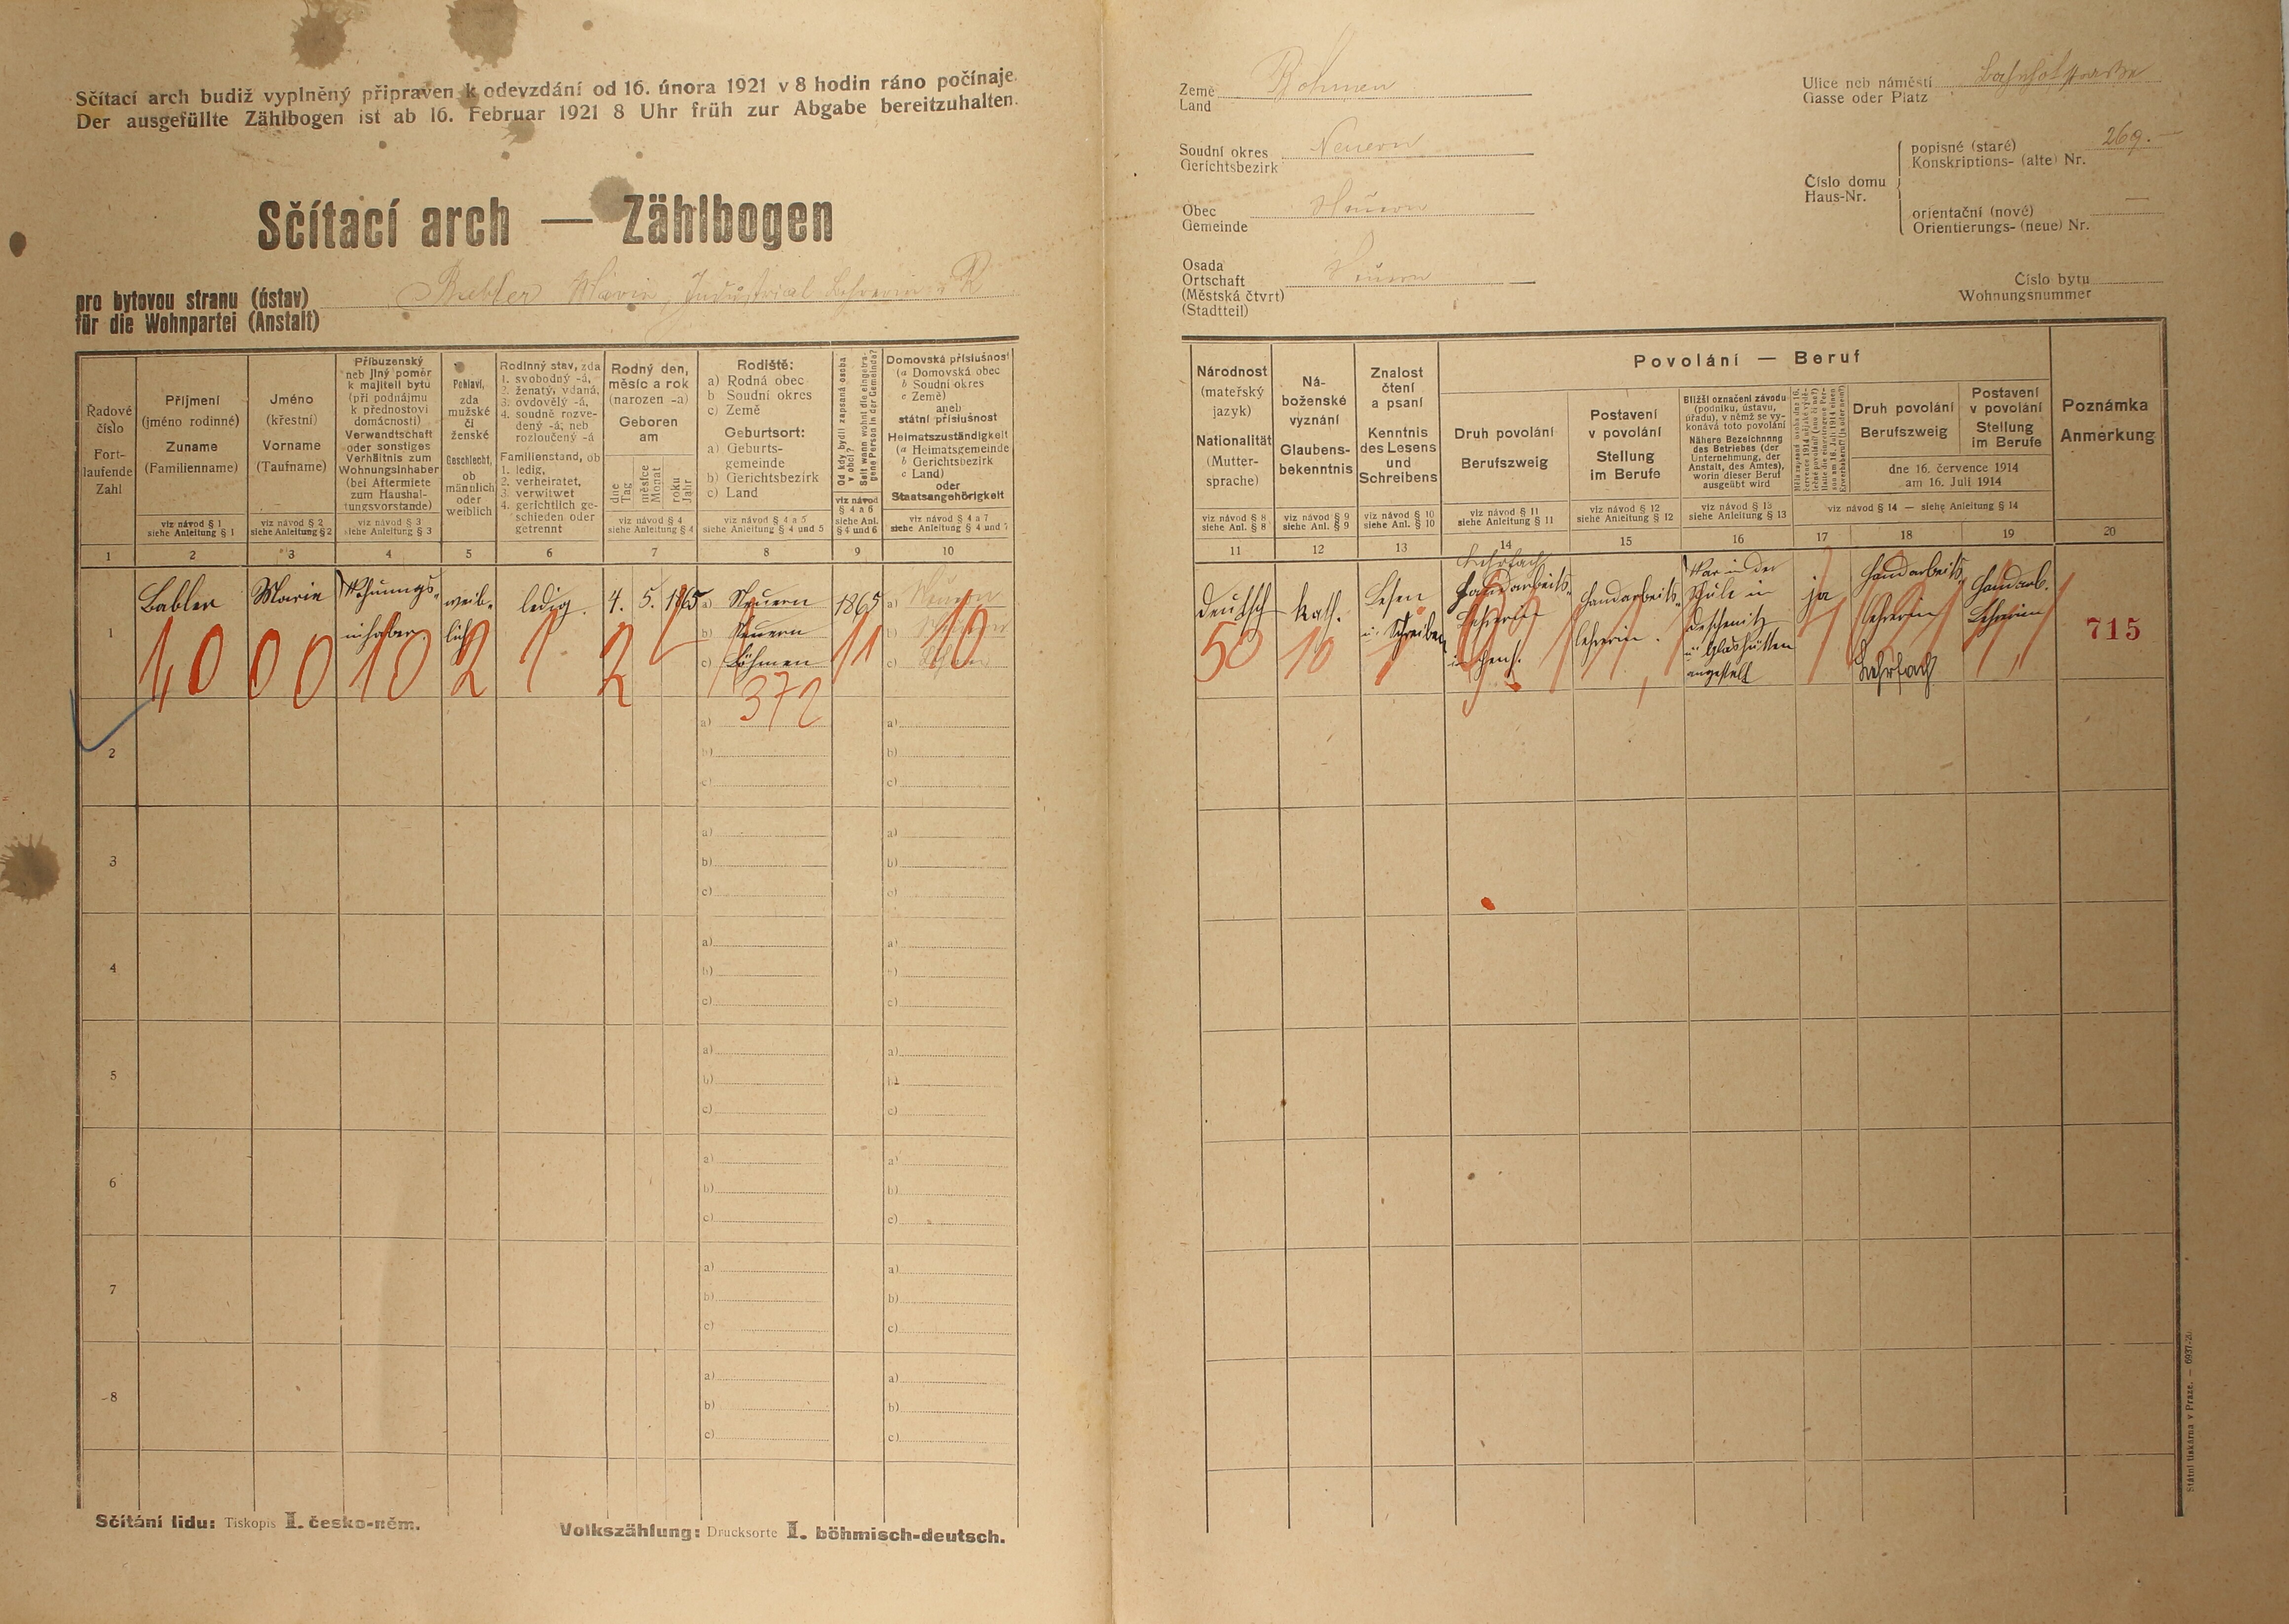 Sčítací arch budiž vyplněný připraven k odevzdání od 16. února 1921 v 8 hodin ráno počínaje.
Der ausgefüllte Zählbogen ist ab 16. Februar 1921 8 Uhr früh zur Abgabe bereitzuhalten.
Sčítací arch — Zählbogen
pro bytovou stranu (ústav)
für die Wohnpartei (Anstalt)
Marie, Industrial Lehrerin
Země
Land
Böhmen
Soudní okres
Gerichtsbezirk
Neuern
Obec
Gemeinde
Neuern
Osada
Ortschaft
(Městská čtvrt)
(Stadtteil)
Neuern
Ulice neb náměstí
Gasse oder Platz
Bahnhofstrasse
Číslo domu
Haus-Nr.
popisné (staré)
Konskriptions- (alte) Nr.
269.—
orientační (nové)
Orientierungs- (neue) Nr.
—
Číslo bytu
Wohnungsnummer
Řadové
číslo
Fort-
laufende
Zahl
1
Příjmení
(jméno rodinné)
Zuname
(Familienname)
viz návod § 1
siehe Anleitung § 1
2
Jméno
(křestní)
Vorname
(Taufname)
viz návod § 2
siehe Anleitung § 2
3
Příbuzenský
neb jiný poměr
k majiteli bytu
(při podnájmu
k přednostovi
domácnosti)
Verwandtschaft
oder sonstiges
Verhältnis zum
Wohnungsinhaber
(bei Aftermiete
zum Haushal-
tungsvorstande)
viz návod § 3
siehe Anleitung § 3
4
Pohlaví,
zda
mužské
či
ženské
Geschlecht,
ob
männlich
oder
weiblich
5
Rodinný stav, zda
1. svobodný -á,
2. ženatý, vdaná,
3. ovdovělý -á,
4. soudně rozve-
dený -á; neb
rozloučený -á
Familienstand, ob
1. ledig,
2. verheiratet,
3. verwitwet
4. gerichtlich ge-
schieden oder
getrennt
6
Rodný den,
měsíc a rok
(narozen -a)
Geboren
am
dne
Tag
měsíce
Monat
roku
Jahr
viz návod § 4
siehe Anleitung § 4
7
Rodiště:
a) Rodná obec
b) Soudní okres
c) Země
Geburtsort:
a) Geburts-
gemeinde
b) Gerichtsbezirk
c) Land
viz návod § 4 a 5
siehe Anleitung § 4 und 5
8
Od kdy bydlí zapsaná osoba
v obci?
Seit wann wohnt die eingetra-
gene Person in der Gemeinde?
viz návod
§ 4 a 6
siehe Anl.
§ 4 und 6
9
Domovská příslušnost
(a Domovská obec
b Soudní okres
c Země)
aneb
státní příslušnost
Heimatszuständigkeit
(a Heimatsgemeinde
b Gerichtsbezirk
c Land)
oder
Staatsangehörigkeit
viz návod § 4 a 7
siehe Anleitung § 4 und 7
10
Národnost
(mateřský
jazyk)
Nationalität
(Mutter-
sprache)
viz návod § 8
siehe Anl. § 8
11
Ná-
boženské
vyznání
Glaubens-
bekenntnis
viz návod § 9
siehe Anl. § 9
12
Znalost
čtení
a psaní
Kenntnis
des Lesens
und
Schreibens
viz návod § 10
siehe Anl. § 10
13
Povolání — Beruf
Druh povolání
Berufszweig
viz návod § 11
siehe Anleitung § 11
14
Postavení
v povolání
Stellung
im Berufe
viz návod § 12
siehe Anleitung § 12
15
Bližší označení závodu
(podniku, ústavu,
úřadu), v němž se vy-
konává toto povolání
Nähere Bezeichnung
des Betriebes (der
Unternehmung, der
Anstalt, des Amtes),
worin dieser Beruf
ausgeübt wird
viz návod § 13
siehe Anleitung § 13
16
17
Druh povolání
Berufszweig
18
Postavení
v povolání
Stellung
im Berufe
19
dne 16. července 1914
am 16. Juli 1914
viz návod § 14 — siehe Anleitung § 14
Poznámka
Anmerkung
20
1
Babler
Marie
Wohnungs-
inhaber.
weib-
lich
ledig.
4. 5. 1865
a) Neuern
b) Neuern
c) Böhmen
1865
a) Neuern
b) Neuern
c) Böhmen
deutsch
kath.
Lesen
u. Schreiben
Lehrfach
Handarbeits-
Lehrerin
Handarbeits-
lehrerin.
War in der
Schule in
Deschenitz
u. Glashütten
angestellt
ja
Handarbeits-
lehrerin
Lehrfach
Handarb.
Lehrerin
715
10 00 10 2 1 2
372
11 10
50 10 1
2
a)
b)
c)
a)
b)
c)
3
a)
b)
c)
a)
b)
c)
4
a)
b)
c)
a)
b)
c)
5
a)
b)
c)
a)
b)
c)
6
a)
b)
c)
a)
b)
c)
7
a)
b)
c)
a)
b)
c)
8
a)
b)
c)
a)
b)
c)
Sčítání lidu: Tiskopis I. česko-něm.
Volkszählung: Drucksorte I. böhmisch-deutsch.
Státní tiskárna v Praze. — 6937-20